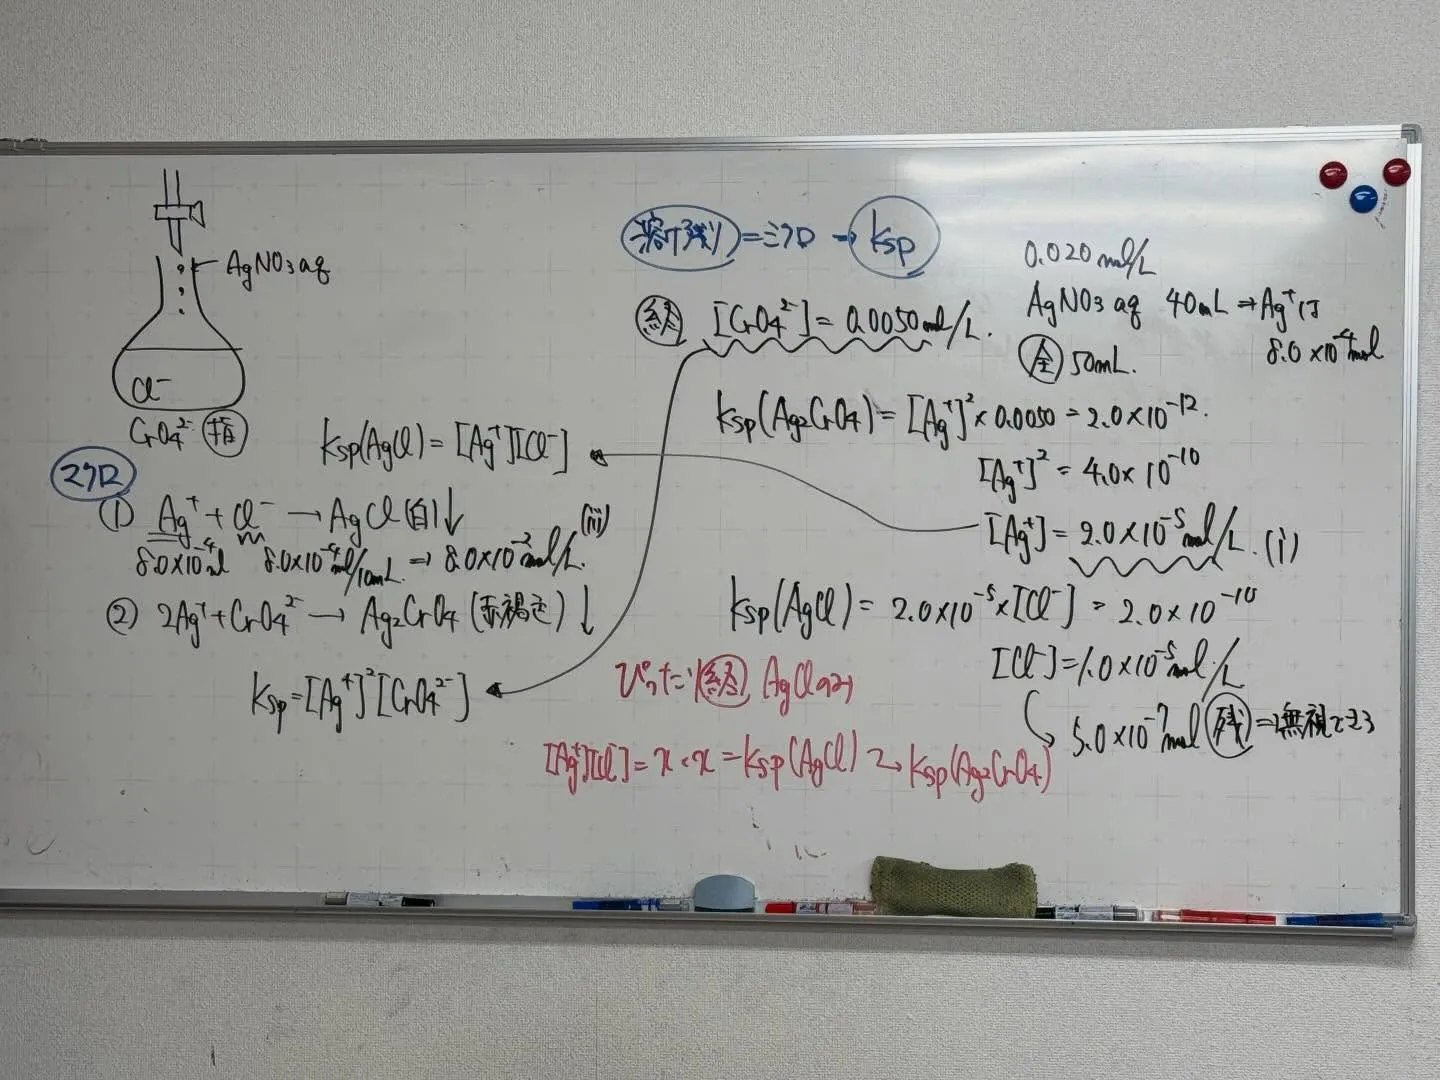 AgNO3 aq
Cl⁻
CrO4²⁻ 指
2クロ
Ksp(AgCl) = [Ag⁺][Cl⁻]
① Ag⁺ + Cl⁻ → AgCl (白)↓
8.0×10⁻⁴mol 8.0×10⁻⁴mol/10mL ⇒ 8.0×10⁻²mol/L. (ii)
② 2Ag⁺ + CrO4²⁻ → Ag2CrO4 (赤褐色)↓
Ksp = [Ag⁺]²[CrO4²⁻]
溶け残り = ミクロ → Ksp
終 [CrO4²⁻] = 0.0050mol/L.
0.020 mol/L
AgNO3 aq 40mL ⇒ Ag⁺は
8.0×10⁻⁴mol
全 50mL.
Ksp(Ag2CrO4) = [Ag⁺]²×0.0050 = 2.0×10⁻¹².
[Ag⁺]² = 4.0×10⁻¹⁰
[Ag⁺] = 2.0×10⁻⁵mol/L. (i)
Ksp(AgCl) = 2.0×10⁻⁵×[Cl⁻] = 2.0×10⁻¹⁰
[Cl⁻] = 1.0×10⁻⁵mol/L
5.0×10⁻⁷mol 残 = 無視できる
ぴったり 終 AgClのみ
[Ag⁺][Cl⁻] = x・x = Ksp(AgCl) → Ksp(Ag2CrO4)